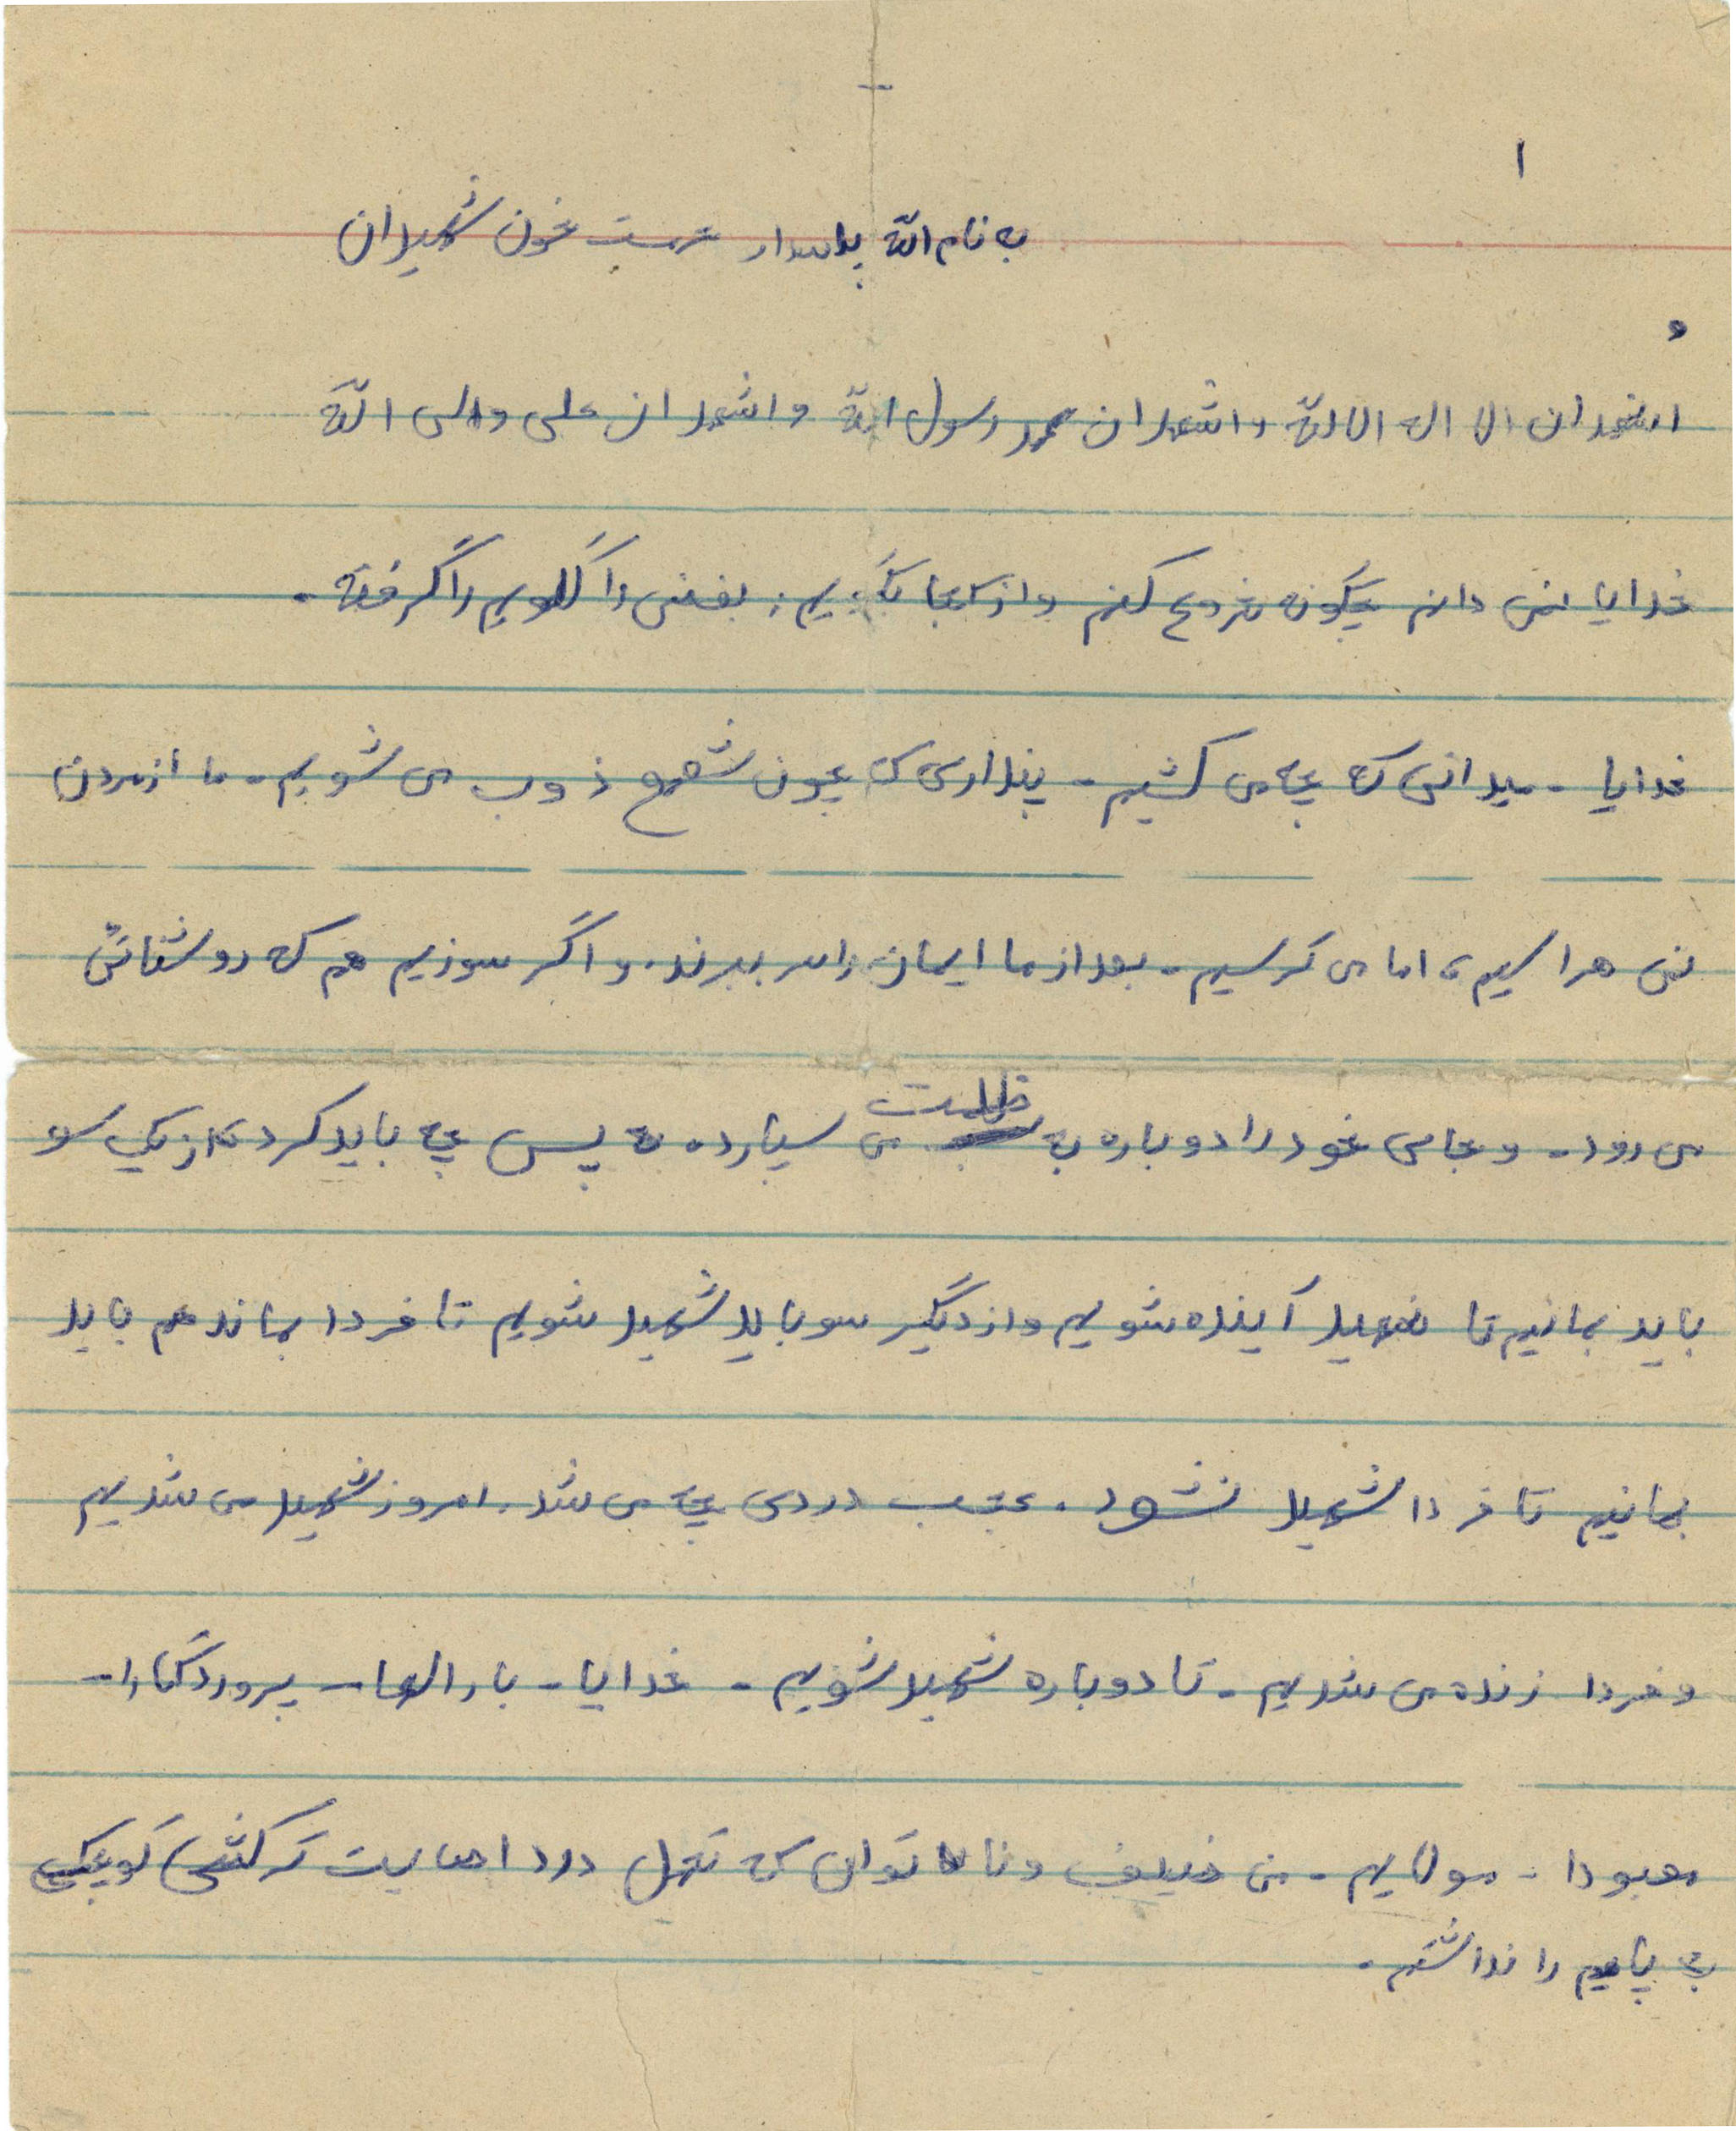 ۱
به نام الله پاسدار حرمت خون شهیدان
و
اشهدان الا اله الا الله و اشهد ان محمد رسول الله و اشهد ان علی ولی الله
خدایا نمی دانم چگونه شروع کنم و از کجا بگویم. بغض راگلویم راگرفته.
خدایا - میدانی که چه می کشیم - پنداری که چون شمع ذوب می شویم - ما از مردن
نمی هراسیم، اما می ترسیم - بعد از ما ایمان را سر ببرند. و اگر سوزیم هم که روشنائی
می رود - و جای خود را دوباره به ظلمت می سپارده - پس چه باید کرد، از یک سو
باید بمانیم تا شهید آینده شویم و از دیگر سو باید شهید شویم تا فردا بماند هم باید
بمانیم تا فردا شهید نشود. عجب دردی چه می شد. امروز شهید می شدیم
و فردا زنده می شدیم - تا دوباره شهید شویم - خدایا - بار الها - پروردگارا -
معبودا - مولایم - من ضعیف و نا توان که تحمل درد اصابت ترکشی کوچکی
به پایم را نداشتم.